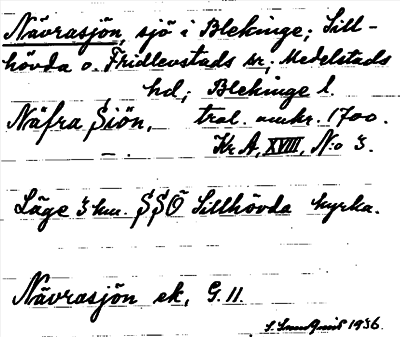 Nävrasjön, sjö i Blekinge; Sill-
hövda o. Fridlevstads sr. Medelstads
hd; Blekinge l.
Näfra Siön, tral. omkr. 1700.
Kr. A, XVIII, N:o 3.
Läge 3 km. SSÖ Sillhövda kyrka.
Nävrasjön ek, G. 11.
1936.